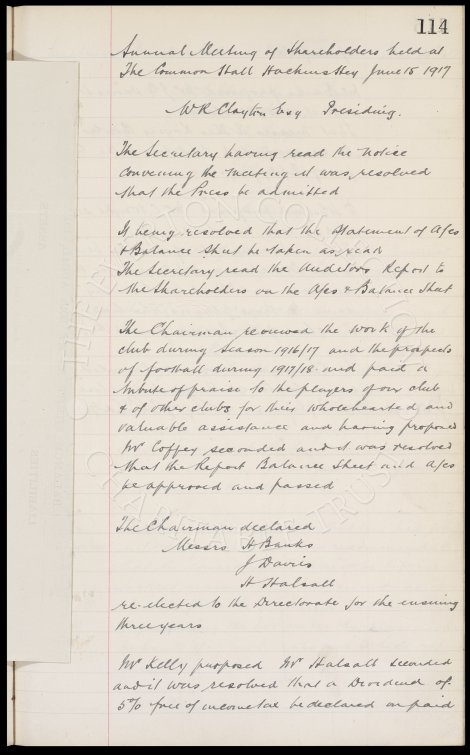 114
Annual Meeting of Shareholders held at
The Common Hall Hackins Hey June 15 1917
W R Clayton Esq Presiding.
The Secretary having read the Notice
convening the Meeting it was resolved
that the Press be admitted
It being resolved that the Statement of A/cs
& Balance Sheet be taken as read
The Secretary read the Auditors Report to
the Shareholders on the A/cs & Balance Sheet
The Chairman reviewed the work of the
club during season 1916/17 and the prospects
of football during 1917/18 and paid a
tribute of praise to the players of our club
& of other clubs for their wholehearted and
valuable assistance and having proposed
Mr Coffey seconded and it was resolved
that the Report Balance Sheet and A/cs
be approved and passed
The Chairman declared
Messrs H Banks
J Davies
H Halsall
re-elected to the Directorate for the ensuing
three years
Mr Kelly proposed Mr Halsall seconded
and it was resolved that a Dividend of
5% free of income tax be declared on paid